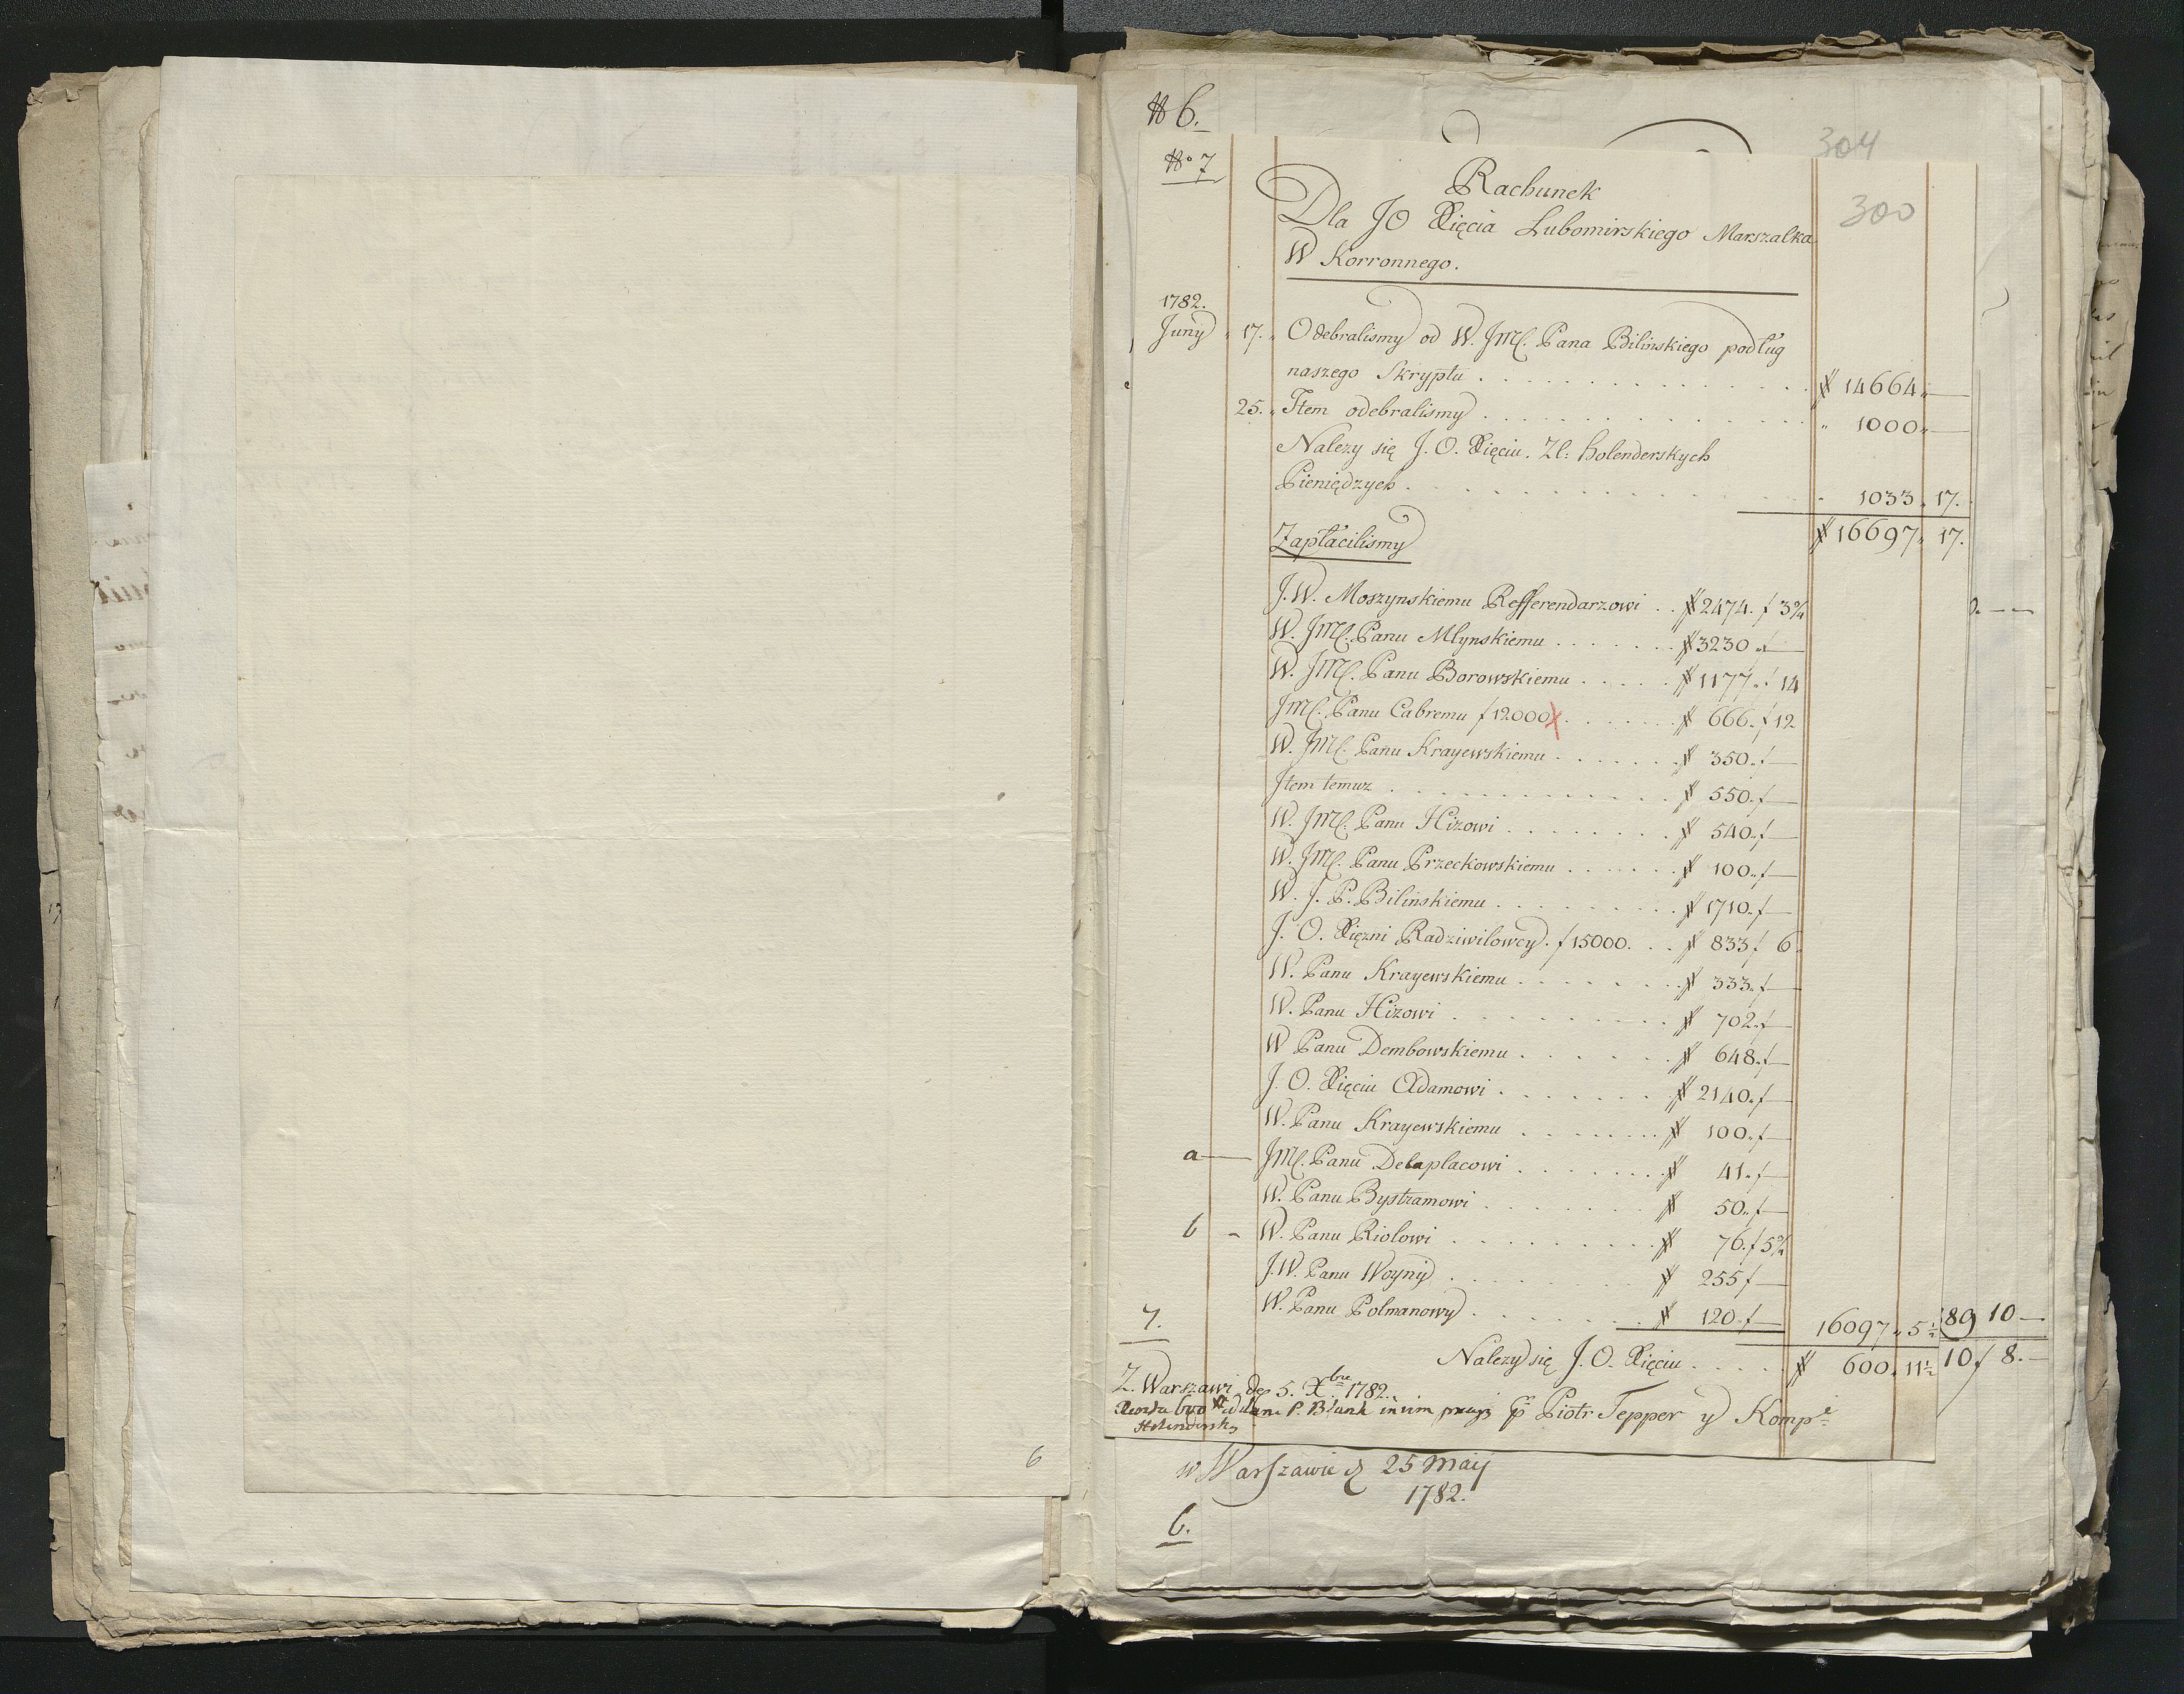 # 6.
304
No 7
300
Rachunek
Dla JO Xięcia Lubomirskiego Marszalka
W Korronnego.
1782.
Juny 17. Odebralismy od W. JMC. Pana Bilinskiego podług
naszego Skryptu . . . # 14664 „ —
25. „ Item odebralismy . . . „ 1000 „ —
Nalezy się J. O. Xięciu. Zl: holenderskych
Pieniędzych . . . 1033 „ 17.
# 16697 „ 17.
Zapłacilismy
J. W. Moszynskiemu Refferendarzowi . . # 2474. f 3¾
W. JMC. Panu Mlynskiemu . . . # 3230 „ f —
W. JMC. Panu Borowskiemu . . . # 1177 „ f 14
JMC. Panu Cabremu f 12000 . . . # 666. f 12
W. JMC. Panu Krayewskiemu . . . # 350. f —
Item temuz . . . # 550. f —
W. JMC. Panu Hizowi . . . # 540. f —
W. JMC. Panu Przeckowskiemu . . . # 100. f —
W. J. P. Bilińskiemu . . . # 1710. f —
J. O. Xięzni Radziwilowcy. f 15000. . . # 833 f 6.
W. Panu Krayewskiemu . . . # 333. f —
W. Panu Hizowi . . . # 702. f —
W Panu Dembowskiemu . . . # 648. f —
J. O. Xięciu Adamowi . . . # 2140. f —
W. Panu Krayewskiemu . . . # 100. f —
a — JMC. Panu Delaplacowi . . . # 41. f —
W. Panu Bystramowi . . . # 50. f —
b - W. Panu Riolowi . . . # 76. f 5¾
J. W. Panu Woyny . . . # 255 f —
W. Panu Polmanowy . . . # 120. f — 16097 „ 5½ 89 10 —
7.
Nalezy się J. O. Xięciu . . . # 600 „ 11½ 10 f 8. —
Z. Warszawi de 5. Xbre 1782.
P. Blank
pr Piotr Tepper y Kompe
w Warszawie d 25 Maij
1782.
6.
6